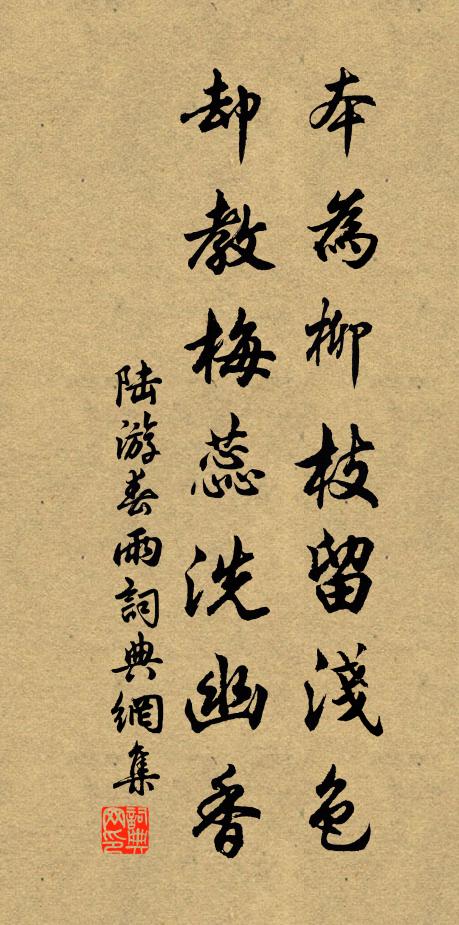 本為柳枝留淺色
却教梅蕊洗幽香
陸游春雨詞典網集
詞典網印